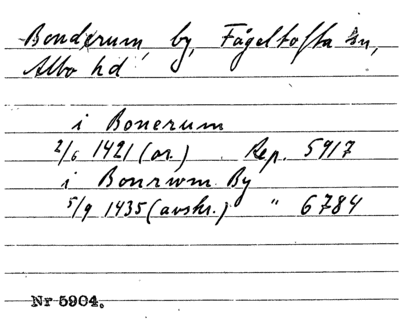 Bonderum, by, Fågeltofta sn,
Albo hd
i Bonerum
2/6 1421 (or.) Rep. 5917
i Bonrwm By
5/9 1435 (avskr.) " 6784
Nr 5904.